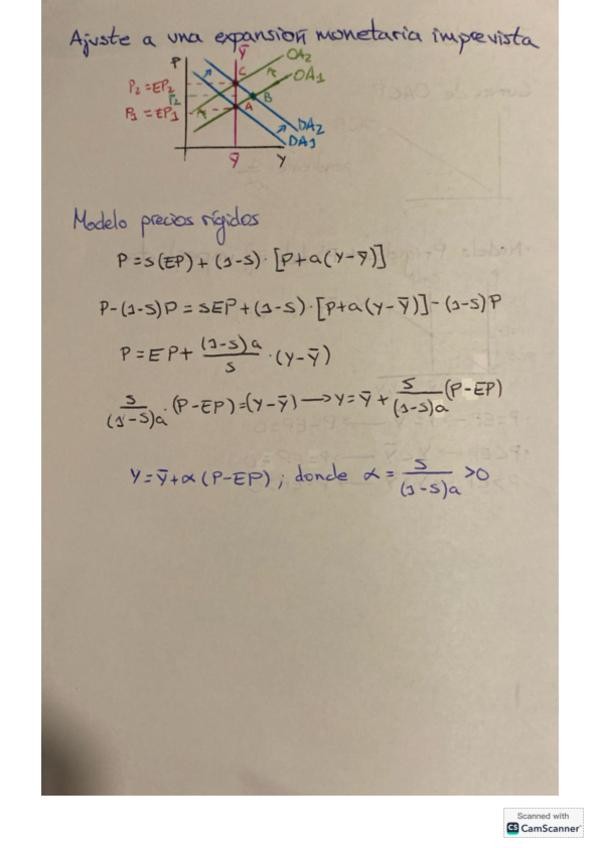 Ajuste a una expansión monetaria imprevista
P
Ȳ
OA2
C
OA1
P2 = EP2
P2
B
P1 = EP1
A
DA2
DA1
Ȳ
Y
Modelo precios rígidos
P = s(EP) + (1-s) · [P + a(Y-Ȳ)]
P-(1-s)P = sEP + (1-s) · [P + a(Y-Ȳ)] - (1-s)P
P = EP + (1-s)a/s · (Y-Ȳ)
s/(1-s)a · (P-EP) = (Y-Ȳ) → Y = Ȳ + s/(1-s)a (P-EP)
Y = Ȳ + α (P-EP) ; donde α = s/(1-s)a > 0
Scanned with
CS CamScanner